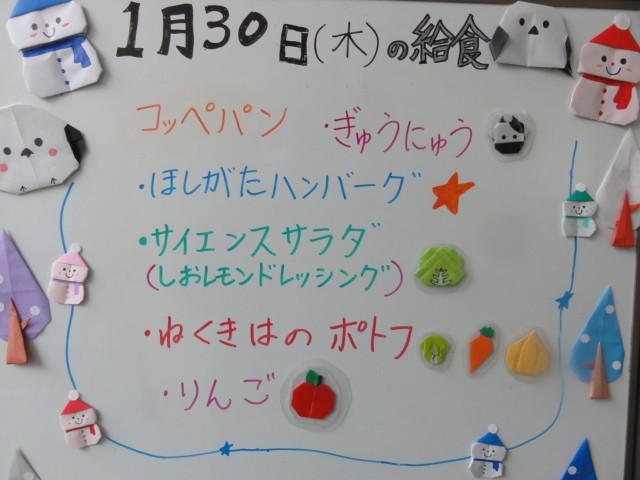 1月30日(木)の給食
コッペパン ・ぎゅうにゅう
・ほしがたハンバーグ
・サイエンスサラダ
(しおレモンドレッシング)
・ねくきはの ポトフ
・りんご